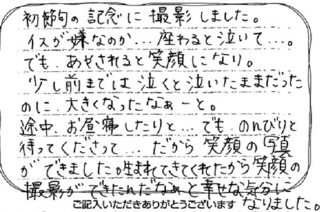 初節句の記念に撮影しました。
イスが嫌なのか…座わると泣いて…。
でも、あやされると笑顔になり。
少し前までは泣くと泣いたままだった
のに、大きくなったなぁーと。
途中、お昼寝したりと…でものんびりと
待ってくださって…だから笑顔の写真
ができました。生まれてきてくれたから笑顔の
撮影ができたんだなぁと幸せな気分に
なりました。
ご記入いただきありがとうございます